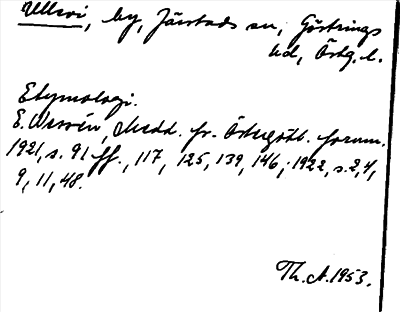 Ullevi, by, Järstads sn, Göstrings
hd, Östg. l.
Etymologi.
E. Wessén, Medd. fr. Östergötl. fornm.
1921, s. 91 ff., 117, 125, 139, 146; 1922, s. 2, 4,
9, 11, 48.
Th. A. 1953.